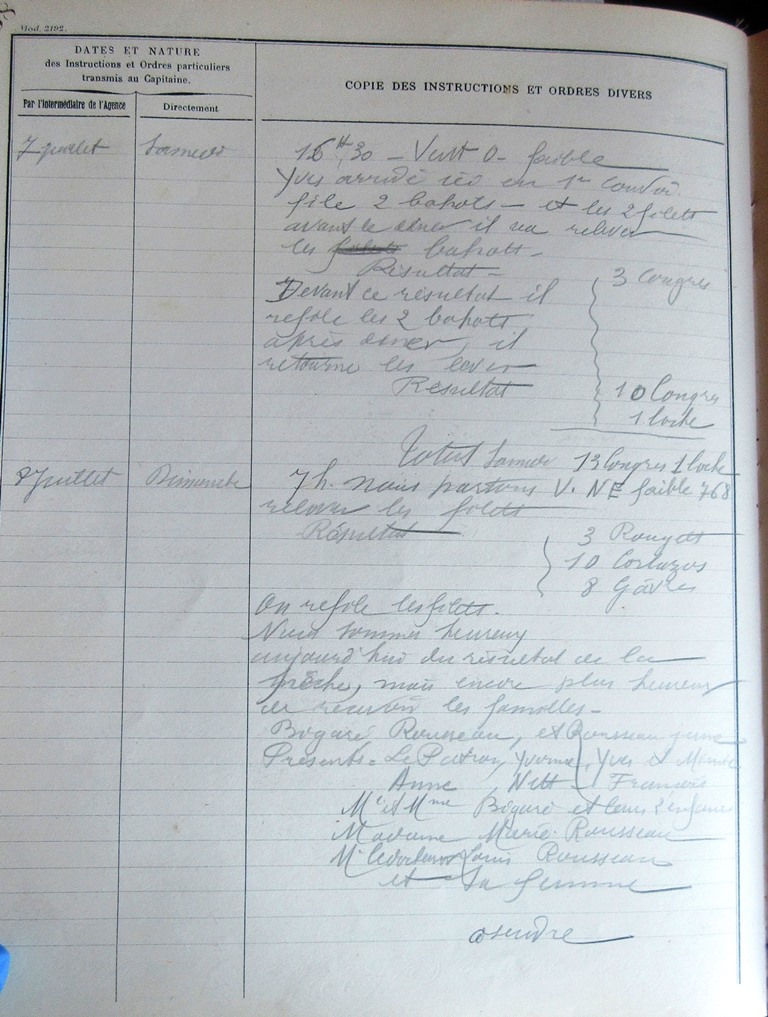 Mod. 2192.
DATES ET NATURE
des Instructions et Ordres particuliers
transmis au Capitaine.
COPIE DES INSTRUCTIONS ET ORDRES DIVERS
Par l'Intermédiaire de l'Agence
Directement
7 juillet Samedi 16 H 30 - Vent O - faible
Yves arrivé ici en 1er convoi
file 2 bahots - et les 2 filets
avant le diner il va relever
les bahott -
Résultat - 3 Congres
Devant ce résultat il
refile les 2 bahott
après diner, il
retourne les lever
Résultat 10 Congres
1 loche
Total Samedi 13 Congres 1 loche
8 Juillet Dimanche 7h. nous partons V. NE faible 768
relever les filets
Résultat 3 Rougets
10
8
On refile les filets.
Nous sommes heureux
aujourd'hui du résultat de la
pêche, mais encore plus heureux
de recevoir les familles -
Bigaré Rousseau, et Rousseau jeune
Présents - Le Patron, Yvonne, Yves et
Anne, François
Mr et Mme Bigaré et leurs 2 enfants
Madame Marie Rousseau
Mr Louis Rousseau
et sa femme